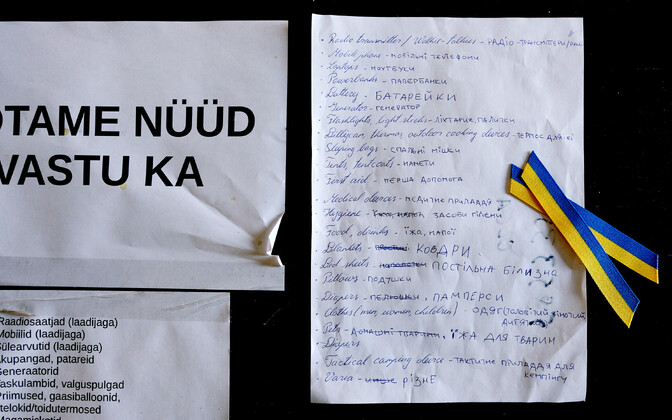 OTAME NÜÜD
VASTU KA
Raadiosaatjad (laadijaga)
Mobiilid (laadijaga)
Sülearvutid (laadijaga)
Akupangad, patareid
Generaatorid
Taskulambid, valguspulgad
Priimused, gaasiballoonid,
telokid/toidutermosed
Magamiskotid
• Radio transmitter / Walkie-talkies - РАДІО-ТРАНСМІТЕРИ/РАЦІЇ
• Mobile phone - МОБІЛЬНІ ТЕЛЕФОНИ
• Laptops - НОУТБУКИ
• Powerbanks - ПАВЕРБАНКИ
• Battery - БАТАРЕЙКИ
• Generator - ГЕНЕРАТОР
• Flashlights, light sticks - ЛІХТАРИК, ПАЛИЧКИ
thermos outdoor cooking devices - ТЕРМОС
• Sleeping bags - СПАЛЬНІ МІШКИ
• Tents, - НАМЕТИ
• First aid - ПЕРША ДОПОМОГА
• Medical devices - МЕДИЧНЕ ПРИЛАДДЯ
• Hygiene - ЗАСОБИ ГІГІЄНИ
• Food, drinks - ЇЖА, НАПОЇ
• Blankets - КОВДРИ
• Bed sheets - ПОСТІЛЬНА БІЛИЗНА
• Pillows - ПОДУШКИ
• Diapers - ПЕЛЮШКИ, ПАМПЕРСИ
• Clothes (men, women, children) - ОДЯГ (ЧОЛОВІЧИЙ, ЖІНОЧИЙ,
ДИТЯЧИЙ)
• Pets - ДОМАШНІ ТВАРИНИ, ЇЖА ДЛЯ ТВАРИН
• Diapers
• Tactical camping device - ТАКТИЧНЕ ПРИЛАДДЯ ДЛЯ
КЕМПІНГУ
• Varia - РІЗНЕ